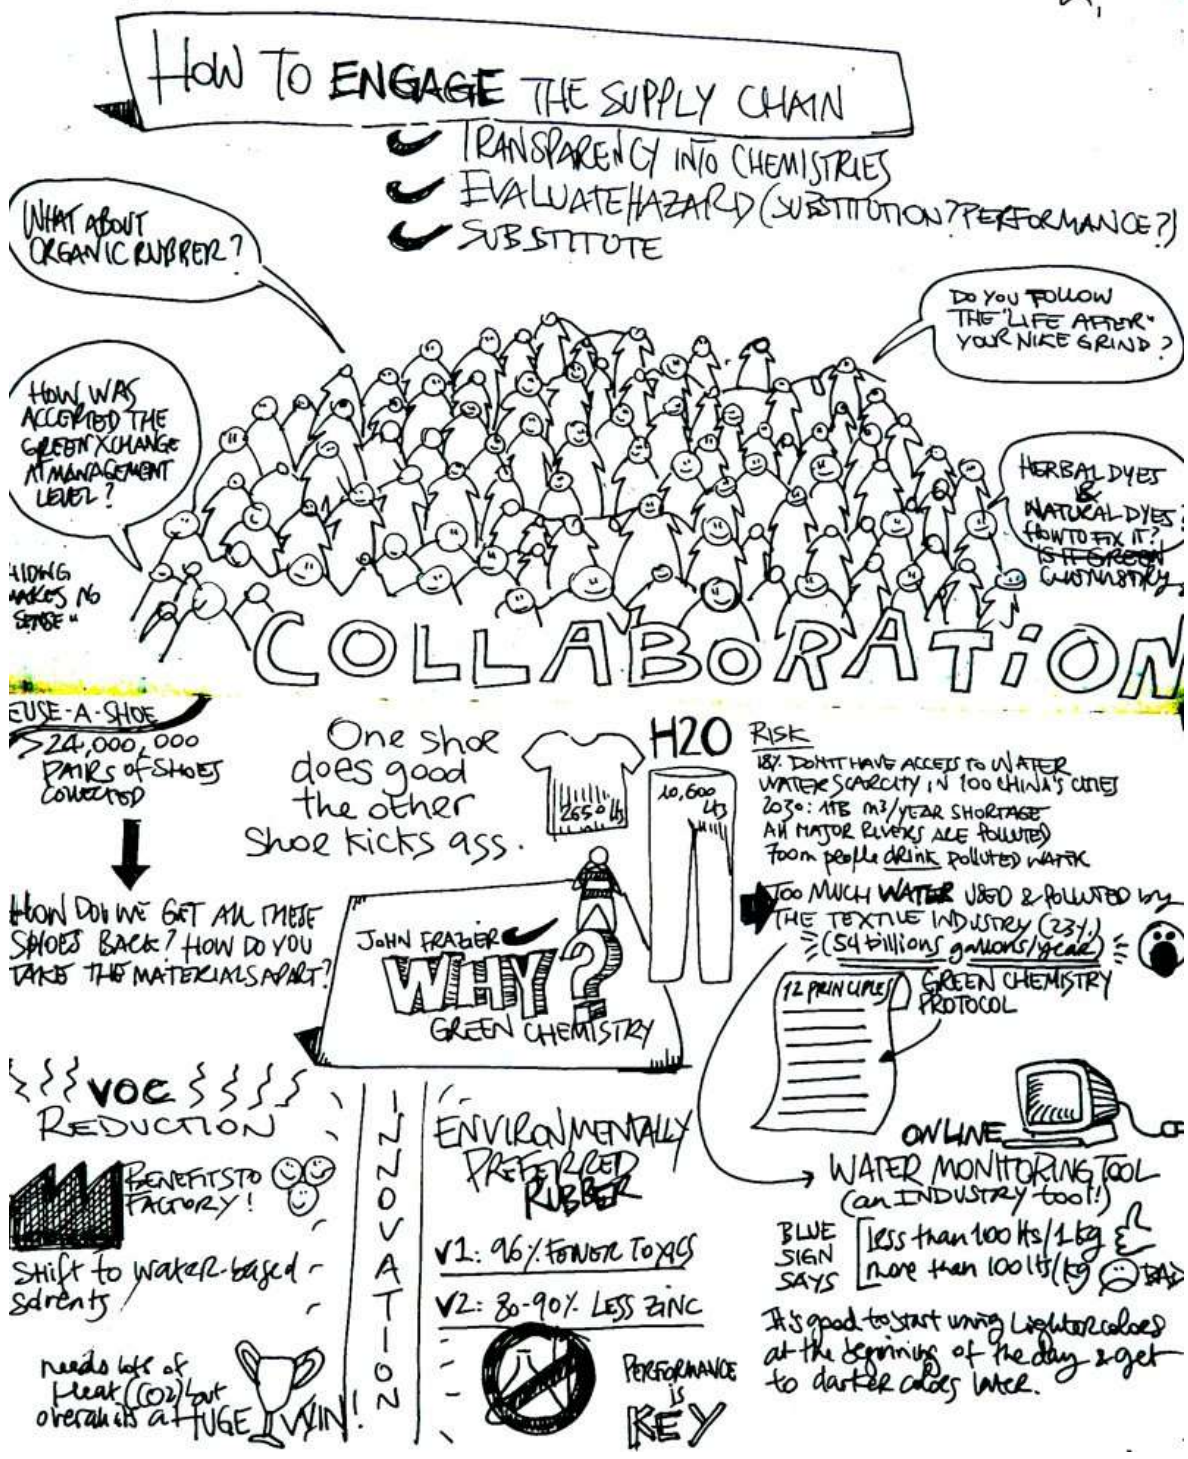 HOW TO ENGAGE THE SUPPLY CHAIN
TRANSPARENCY INTO CHEMISTRIES
EVALUATE HAZARD (SUBSTITUTION? PERFORMANCE?)
SUBSTITUTE
WHAT ABOUT
ORGANIC RUBBER?
DO YOU FOLLOW
THE "LIFE AFTER"
YOUR NIKE GRIND?
HOW WAS
ACCEPTED THE
GREENXCHANGE
AT MANAGEMENT
LEVEL?
HERBAL DYES
&
NATURAL DYES?
HOW TO FIX IT?
IS IT GREEN
CHEMISTRY
HIDING
MAKES NO
SENSE"
COLLABORATION
EUSE-A-SHOE
>24,000,000
PAIRS OF SHOES
COLLECTED
HOW DO WE GET ALL THESE
SHOES BACK? HOW DO YOU
TAKE THE MATERIALS APART?
One shoe
does good
the other
Shoe kicks ass.
2650 lts
H2O
10,600
lts
RISK
18% DON'T HAVE ACCESS TO WATER
WATER SCARCITY IN 100 CHINA'S CITIES
2030: 1TB m3/YEAR SHORTAGE
All MAJOR RIVERS ARE POLLUTED
700m people drink POLLUTED WATER
TOO MUCH WATER USED & POLLUTED by
THE TEXTILE INDUSTRY (23%)
(54 billions gallons/year)
JOHN FRAZIER
WHY?
GREEN CHEMISTRY
12 PRINCIPLES
GREEN CHEMISTRY
PROTOCOL
VOC
REDUCTION
BENEFITS TO
FACTORY!
Shift to water-based
Solvents
needs lots of
Heat (CO2) but
overall its a HUGE WIN!
INNOVATION
ENVIRONMENTALLY
PREFERRED
RUBBER
V1: 96% FEWER TOXICS
V2: 80-90% LESS ZINC
PERFORMANCE
is
KEY
ONLINE
WATER MONITORING TOOL
(an INDUSTRY tool!)
BLUE
SIGN
SAYS
less than 100 lts/1kg
more than 100 lts/kg BAD
It's good to start using Lighter colors
at the beginning of the day & get
to darker colors later.